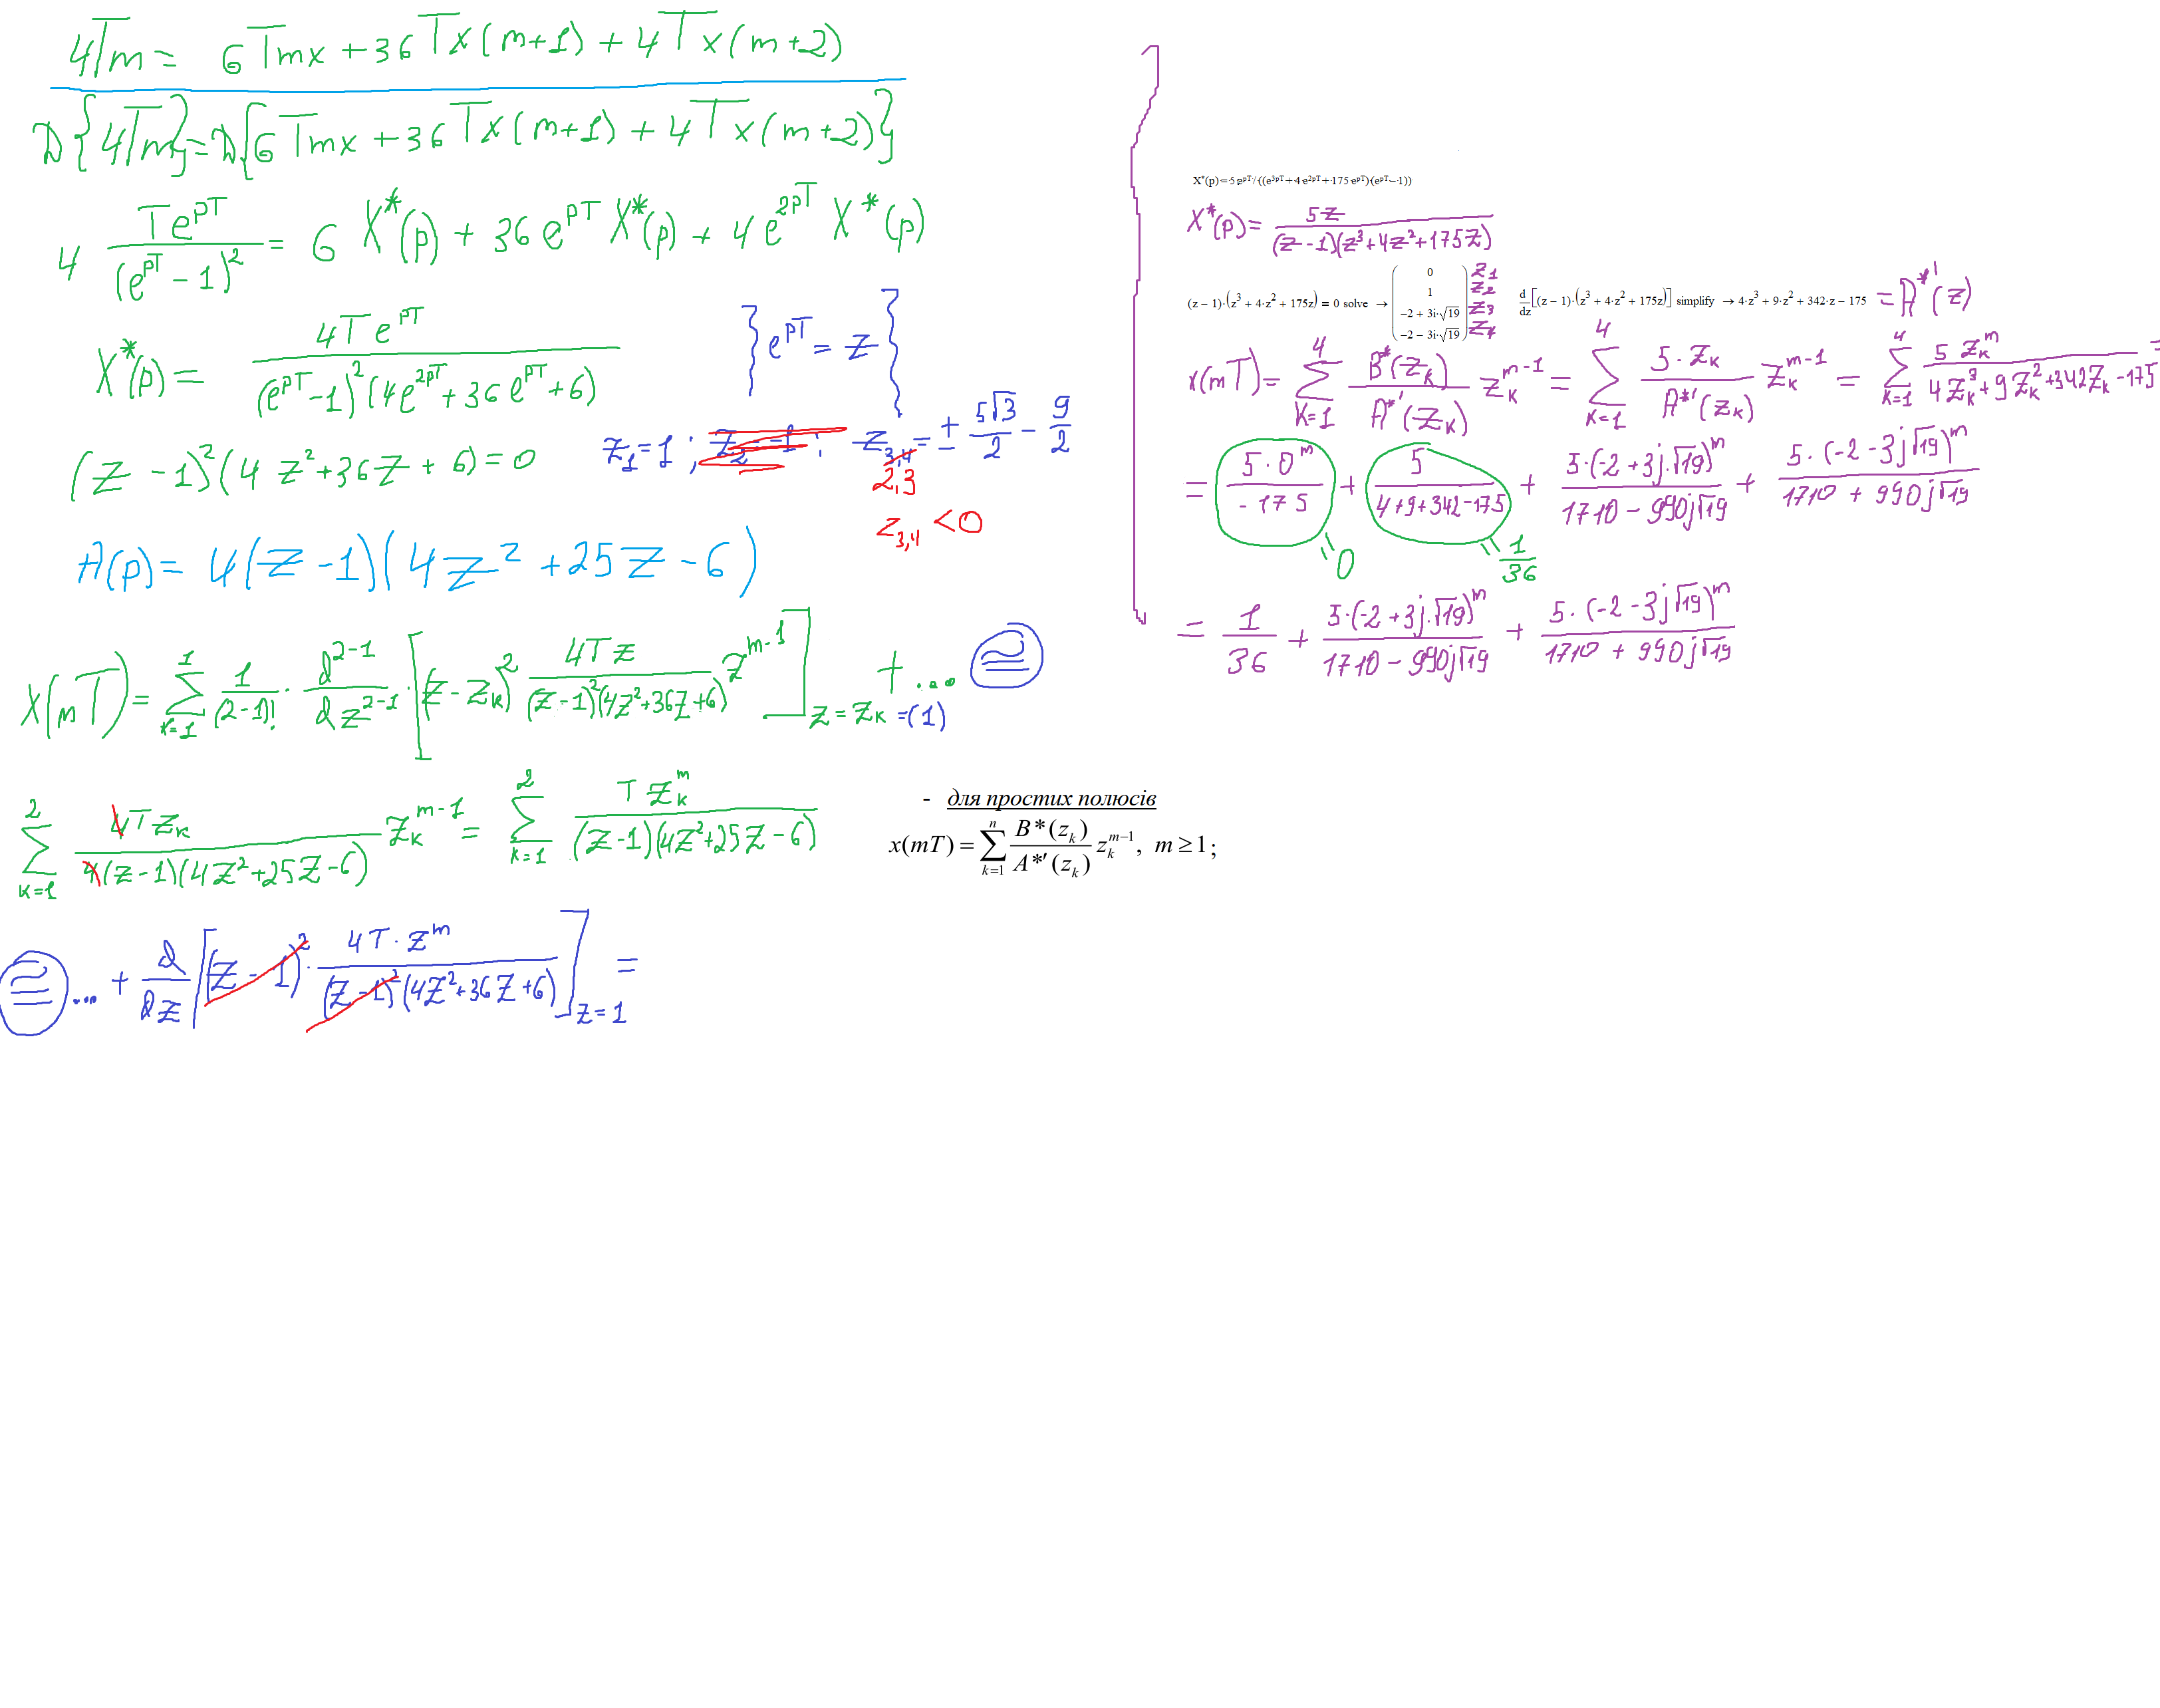 4Tm = 6Tmx + 36Tx(m+1) + 4Tx(m+2)
D{4Tm} = D{6Tmx + 36Tx(m+1) + 4Tx(m+2)}
4 Te^{pT}/(e^{pT} - 1)^2 = 6 X*(p) + 36 e^{pT} X*(p) + 4 e^{2pT} X*(p)
X*(p) = 4Te^{pT}/((e^{pT} - 1)^2 (4e^{2pT} + 36e^{pT} + 6)) } e^{pT} = z {
(z - 1)^2 (4z^2 + 36z + 6) = 0 z_1 = 1 ; z_{3,4} = ± 5√3/2 - 9/2
2,3
z_{3,4} < 0
A(p) = 4(z - 1)(4z^2 + 25z - 6)
X(mT) = Σ_{k=1}^{1} 1/(2-1)! · d^{2-1}/dz^{2-1} · [(z - z_k)^2 4Tz/((z-1)^2(4z^2+36z+6)) z^{m-1}]_{z = z_k = (1)} + ... =
Σ_{k=1}^{2} 4Tz_k/(4(z-1)(4z^2+25z-6)) z_k^{m-1} = Σ_{k=1}^{2} T z_k^m/((z-1)(4z^2+25z-6))
= ... + d/dz [(z - 1)^2 · 4T·z^m/((z-1)^2(4z^2+36z+6))]_{z=1} =
X*(p)=5·e^{pT}/((e^{3pT}+4·e^{2pT}+175·e^{pT})·(e^{pT}-1))
X*(p) = 5z/((z-1)(z^3+4z^2+175z))
(z − 1)·(z^3 + 4·z^2 + 175z) = 0 solve → (0 1 −2 + 3i·√19 −2 − 3i·√19) z_1 z_2 z_3 z_4
d/dz[(z − 1)·(z^3 + 4·z^2 + 175z)] simplify → 4·z^3 + 9·z^2 + 342·z − 175 = A*'(z)
x(mT) = Σ_{k=1}^{4} B*(z_k)/A*'(z_k) z_k^{m-1} = Σ_{k=1}^{4} 5·z_k/A*'(z_k) z_k^{m-1} = Σ_{k=1}^{4} 5 z_k^m/(4z_k^3+9z_k^2+342z_k-175) =
= 5·0^m/(-175) + 5/(4+9+342-175) + 5·(-2+3j·√19)^m/(1710-990j√19) + 5·(-2-3j√19)^m/(1710+990j√19)
= 0 = 1/36
= 1/36 + 5·(-2+3j·√19)^m/(1710-990j√19) + 5·(-2-3j√19)^m/(1710+990j√19)
- для простих полюсів
x(mT) = Σ_{k=1}^{n} B*(z_k)/A*'(z_k) z_k^{m−1}, m ≥ 1;